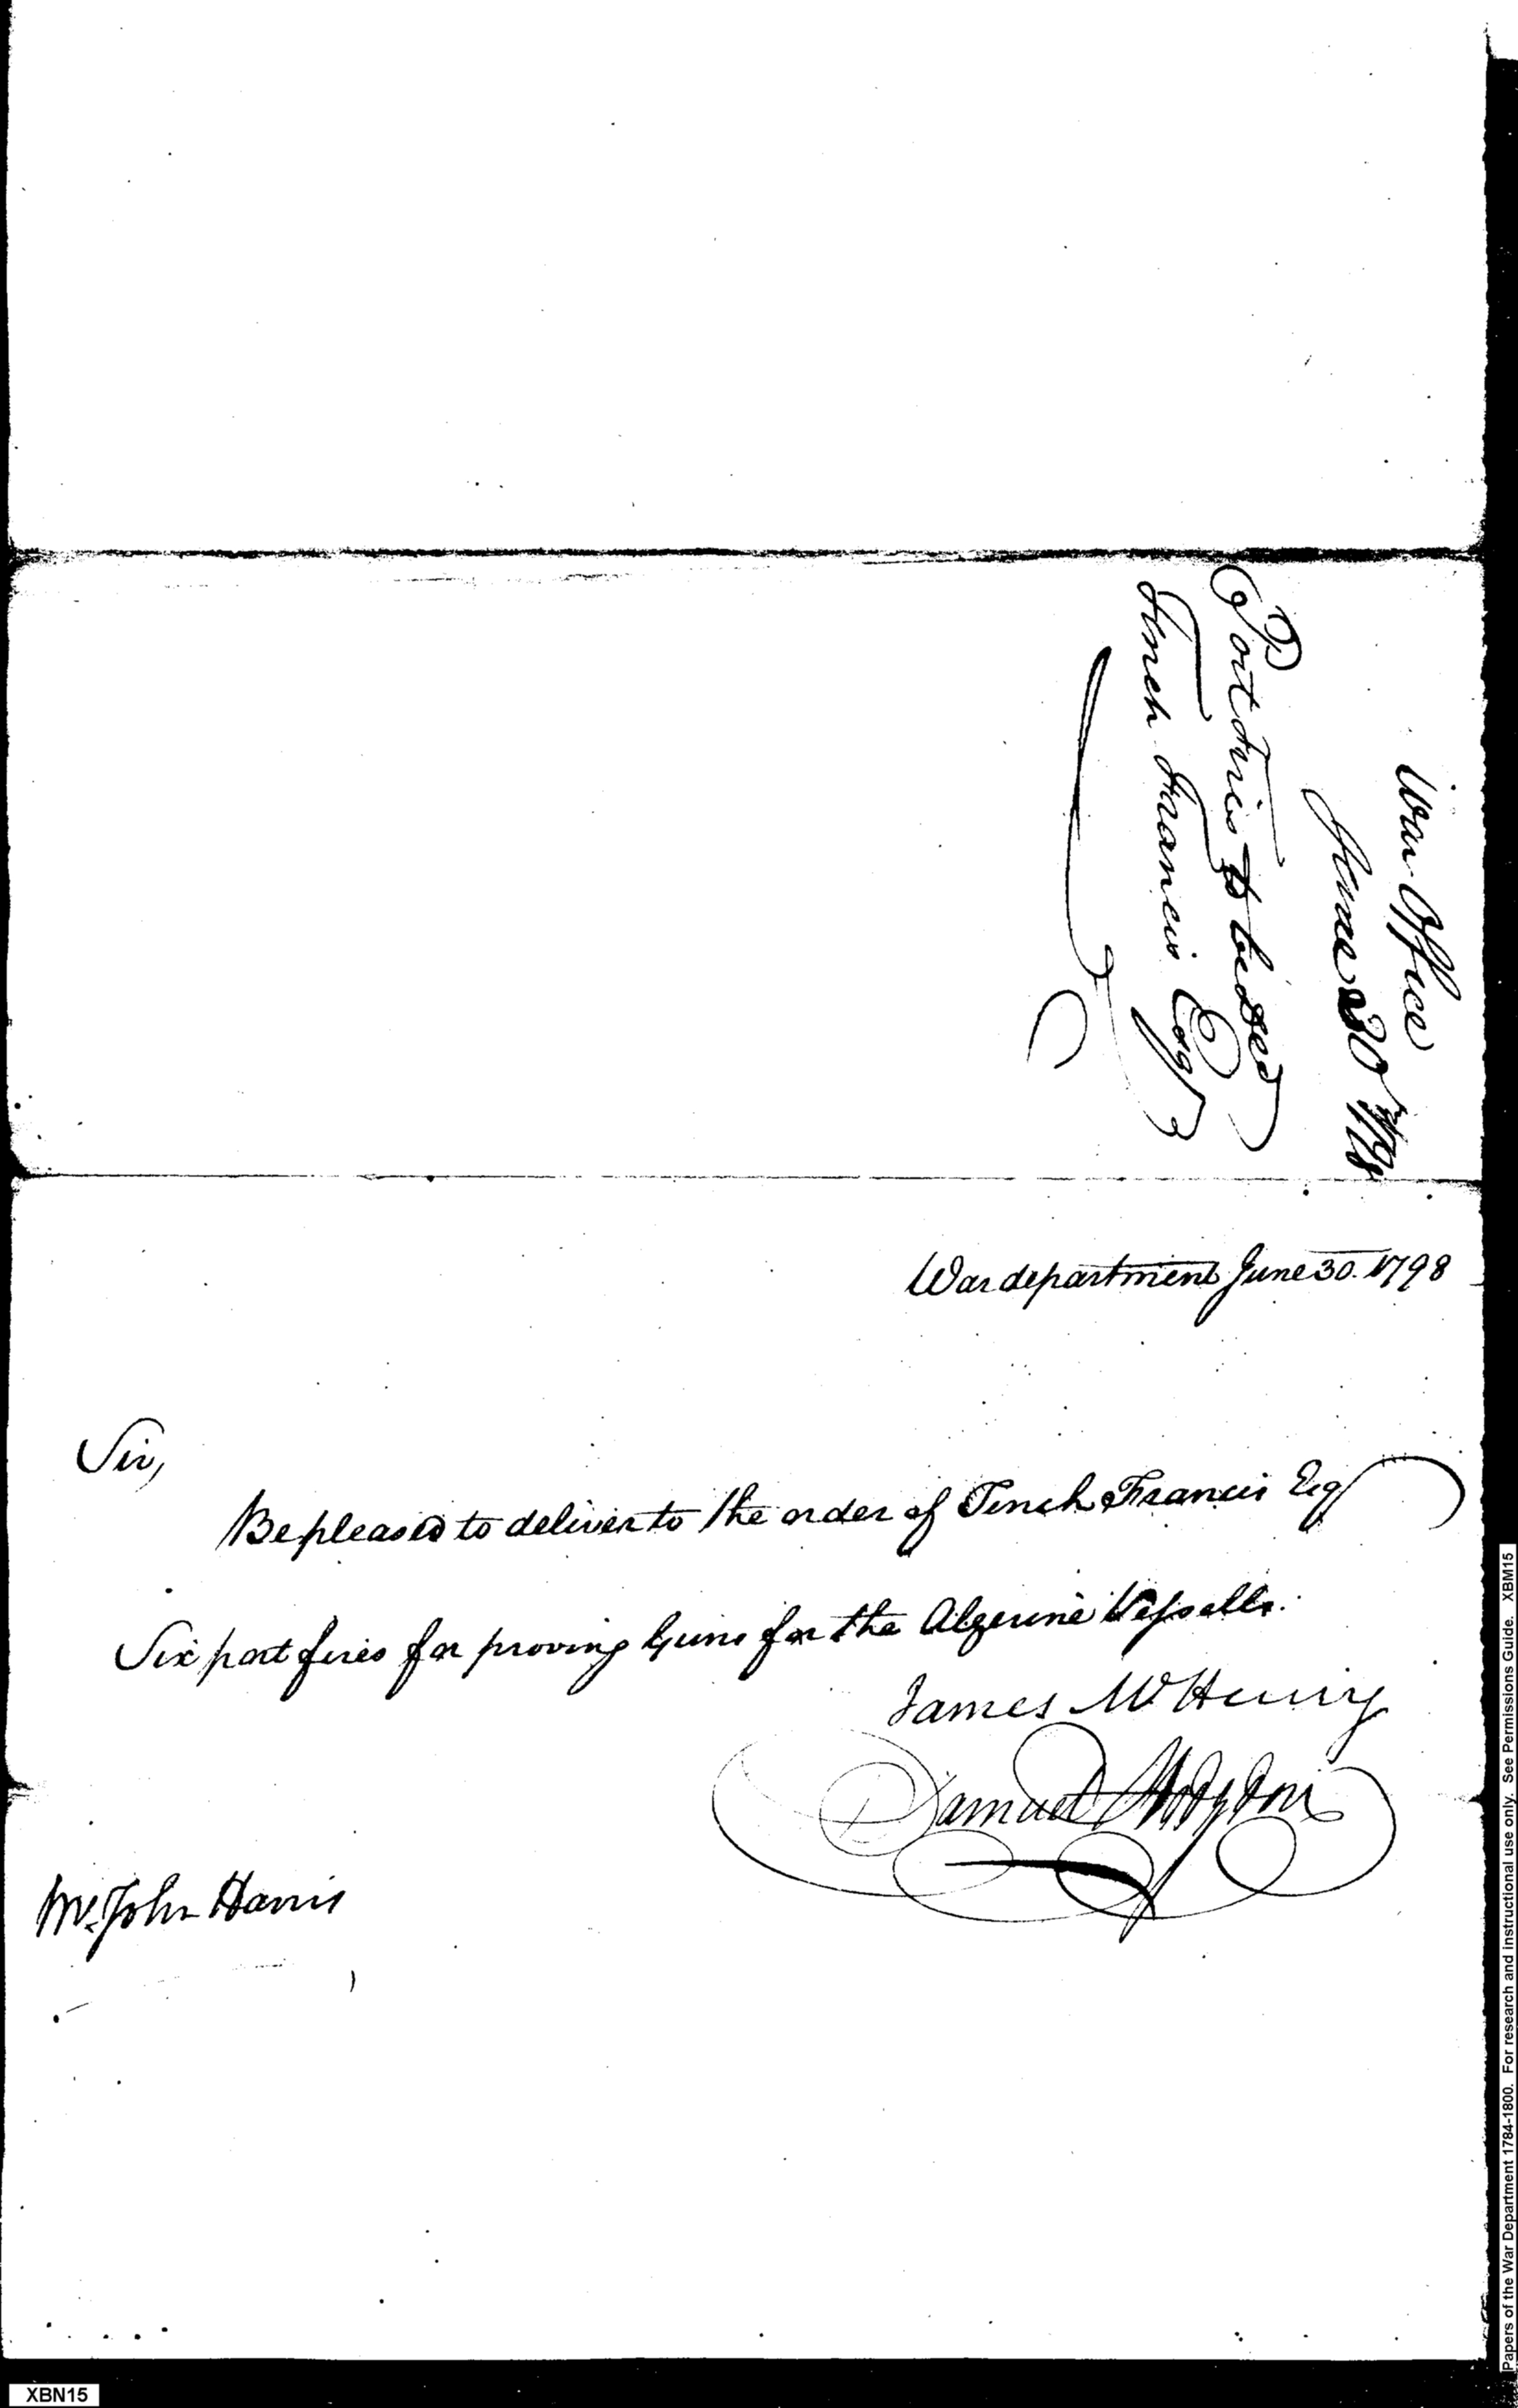 War Office
June 30th 1798
Port Fires to be del
Tench Francis Esqr
War department June 30. 1798
Sir,
Be pleased to deliver to the order of Tench Francis Esqr
Six port fires for proving Guns for the Algerine Vessells.
James McHenry
Samuel Hodgdon
Mr. John Harris
Papers of the War Department 1784-1800. For research and instructional use only. See Permissions Guide. XBM15
XBN15